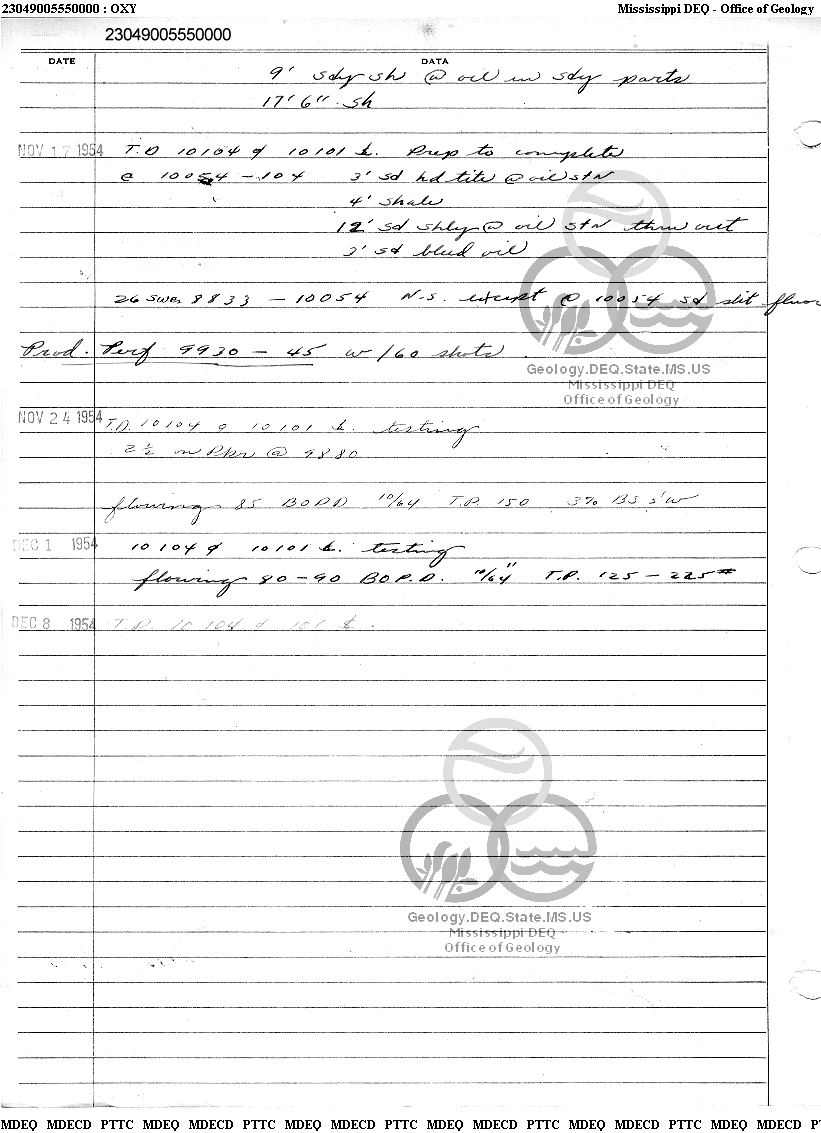 23049005550000 : OXY Mississippi DEQ - Office of Geology
23049005550000
DATE DATA
9' sdy sh @ oil in sdy parts
17'6" sh
NOV 17 1954 T.D 10104 10101 Prep to complete
@ 10054 - 104 3' sd hd tite @ oil stn
4' shale
12' sd shly @ oil stn thru out
3' sd bleed oil
26 swcs 8833 - 10054 N.S. except @ 10054 sd slit fluor
Prod. Perf 9930 - 45 w/60 shots
Geology.DEQ.State.MS.US
Mississippi DEQ
Office of Geology
NOV 24 1954 T.D. 10104 10101 testing
2½ on Pkr @ 9880
flowing 85 BOPD 10/64 T.P. 150 3% BS&W
DEC 1 1954 10104 10101 testing
flowing 80-90 B.O.P.D. 10/64" T.P. 125-225#
DEC 8 1954 T.D. 10104 101
Geology.DEQ.State.MS.US
Mississippi DEQ
Office of Geology
MDEQ MDECD PTTC MDEQ MDECD PTTC MDEQ MDECD PTTC MDEQ MDECD PTTC MDEQ MDECD PTTC MDEQ MDECD P